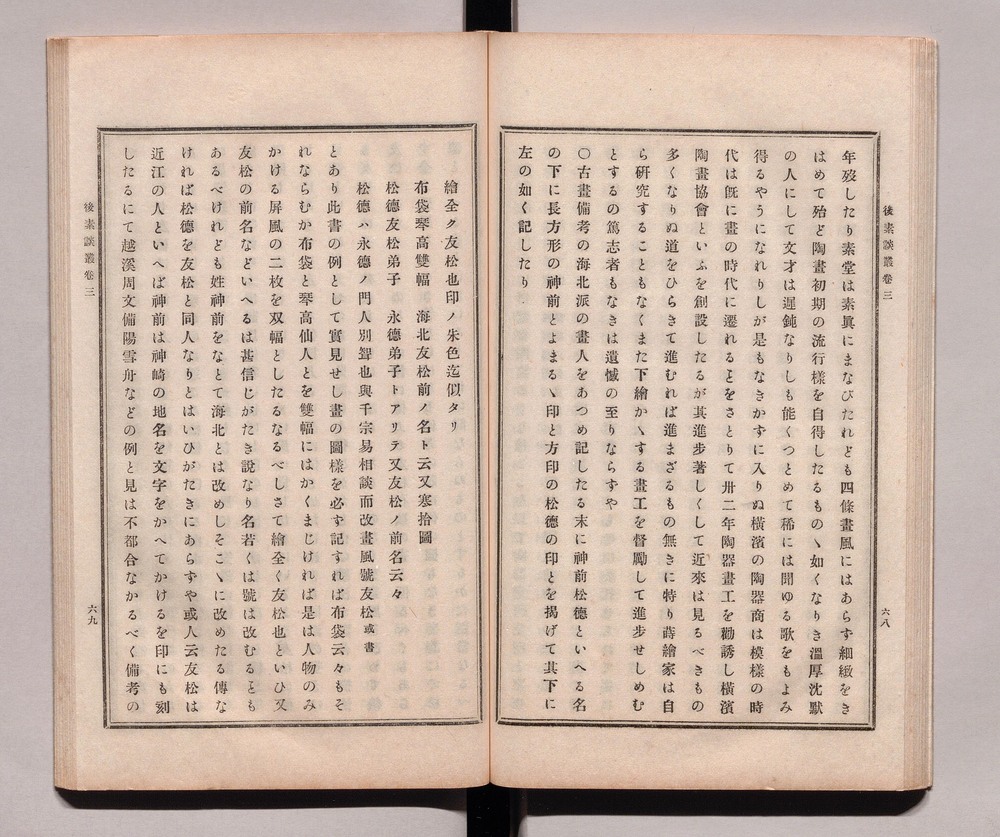 後素談叢卷三
六八
年歿したり素堂は素眞にまなびたれども四條畫風にはあらす細緻をき
はめて殆ど陶畫初期の流行樣を自得したるものヽ如くなりき溫厚沈默
の人にして文才は遲鈍なりしも能くつとめて稀には聞ゆる歌をもよみ
得るやうになれりしが是もなきかすに入りぬ橫濱の陶器商は模樣の時
代は既に畫の時代に遷れるとをさとりて卅二年陶器畫工を勸誘し橫濱
陶畫協會といふを創設したるが其進步著しくして近來は見るべきもの
多くなりぬ道をひらきて進むれば進まざるもの無きに特り蒔繪家は自
ら硏究することもなくまた下繪かヽする畫工を督勵して進步せしめむ
とするの篤志者もなきは遺憾の至りならすや
〇古畫備考の海北派の畫人をあつめ記したる末に神前松德といへる名
の下に長方形の神前とよまるヽ印と方印の松德の印とを揭げて其下に
左の如く記したり
繪全ク友松也印ノ朱色迄似タリ
布袋琴高雙幅 海北友松前ノ名ト云又寒拾圖
松德友松弟子 永德弟子トアリテ又友松ノ前名云々
松德ハ永德ノ門人別聟也與千宗易相談而改畫風號友松或書
とあり此書の例として實見せし畫の圖樣を必ず記すれば布袋云々もそ
れならむか布袋と琴高仙人とを雙幅にはかくまじければ是は人物のみ
かける屛風の二枚を双幅としたるなるべしさて繪全く友松也といひ又
友松の前名などいへるは甚信じがたき說なり名若くは號は改むるとも
あるべけれども姓神前をなとて海北とは改めしそこヽに改めたる傳な
ければ松德を友松と同人なりとはいひがたきにあらすや或人云友松は
近江の人といへば神前は神崎の地名を文字をかへてかけるを印にも刻
したるにて越溪周文備陽雪舟などの例と見は不都合なかるべく備考の
後素談叢卷三
六九